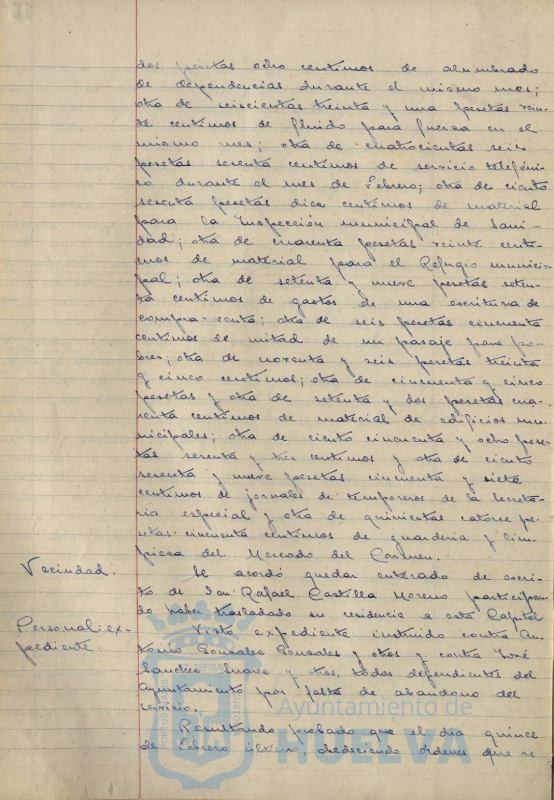 dos pesetas ocho centimos de alumbrado
de dependencias durante el mismo mes;
otra de seiscientas treinta y una pesetas vein-
te centimos de fluido para fuerza en el
mismo mes; otra de cuatrocientas seis
pesetas sesenta centimos de servicio telefóni-
co durante el mes de Febrero; otra de ciento
sesenta pesetas diez centimos de material
para la Inspección municipal de Sani-
dad; otra de cuarenta pesetas veinte centi-
mos de material para el Refugio munici-
pal; otra de setenta y nueve pesetas seten-
ta centimos de gastos de una escritura de
compra-venta; otra de seis pesetas cincuenta
centimos de mitad de un pasaje para po-
bres; otra de noventa y seis pesetas treinta
y cinco centimos; otra de cincuenta y cinco
pesetas y otra de setenta y dos pesetas cua-
renta centimos de material de edificios mu-
nicipales; otra de ciento cincuenta y ocho pese-
tas sesenta y tres centimos y otra de ciento
sesenta y nueve pesetas cincuenta y siete
centimos de jornales de temporeros de la Secreta-
ria especial y otra de quinientas catorce pe-
setas cincuenta centimos de guarderia y lim-
pieza del Mercado del Carmen.
Vecindad. Se acordó quedar enterado de escri-
to de Don Rafael Castilla Moreno participan-
do haber trasladado su residencia a esta Capital
Personal: ex- Visto expediente instruido contra An-
pediente. tonio Gonzalez Gonzalez y otros y contra José
Sanchez Suarez y otros, todos dependientes del
Ayuntamiento por falta de abandono del
servicio.
Resultando probado que el día quince
de Febrero último, obedeciendo órdenes que se
Ayuntamiento de
HUELVA